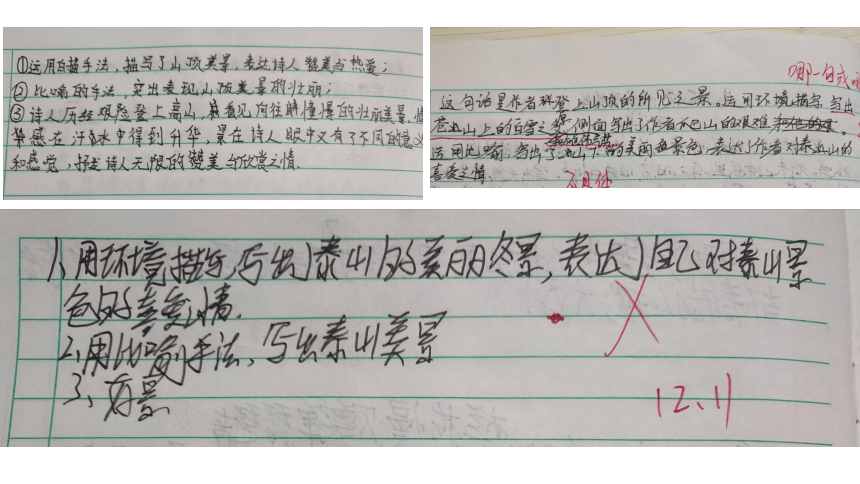 ①运用白描手法,描写了山顶美景,表达诗人赞美与热爱;
②比喻的手法,突出表现山顶美景的壮丽;
③诗人历经艰险登上高山,看见向往憧憬的壮丽美景,情
感在汗水中得到升华,景在诗人眼中又有了不同的意义
和感觉,抒发诗人无限的赞美与欣赏之情.
哪一句或
这句话是作者登上山顶的所见之景。运用环境描写写出
苍山上的白雪之 侧面写出了作者 山的艰难
运用比喻,写出了 山下 的美丽 景色,表达了作者对泰山的
喜爱之情.
不具体
1、用环境描写,写出了泰山的美丽冬景,表达了自己对泰山景
色的喜爱之情.
2、用比喻手法、写出泰山美景
3、
12、11